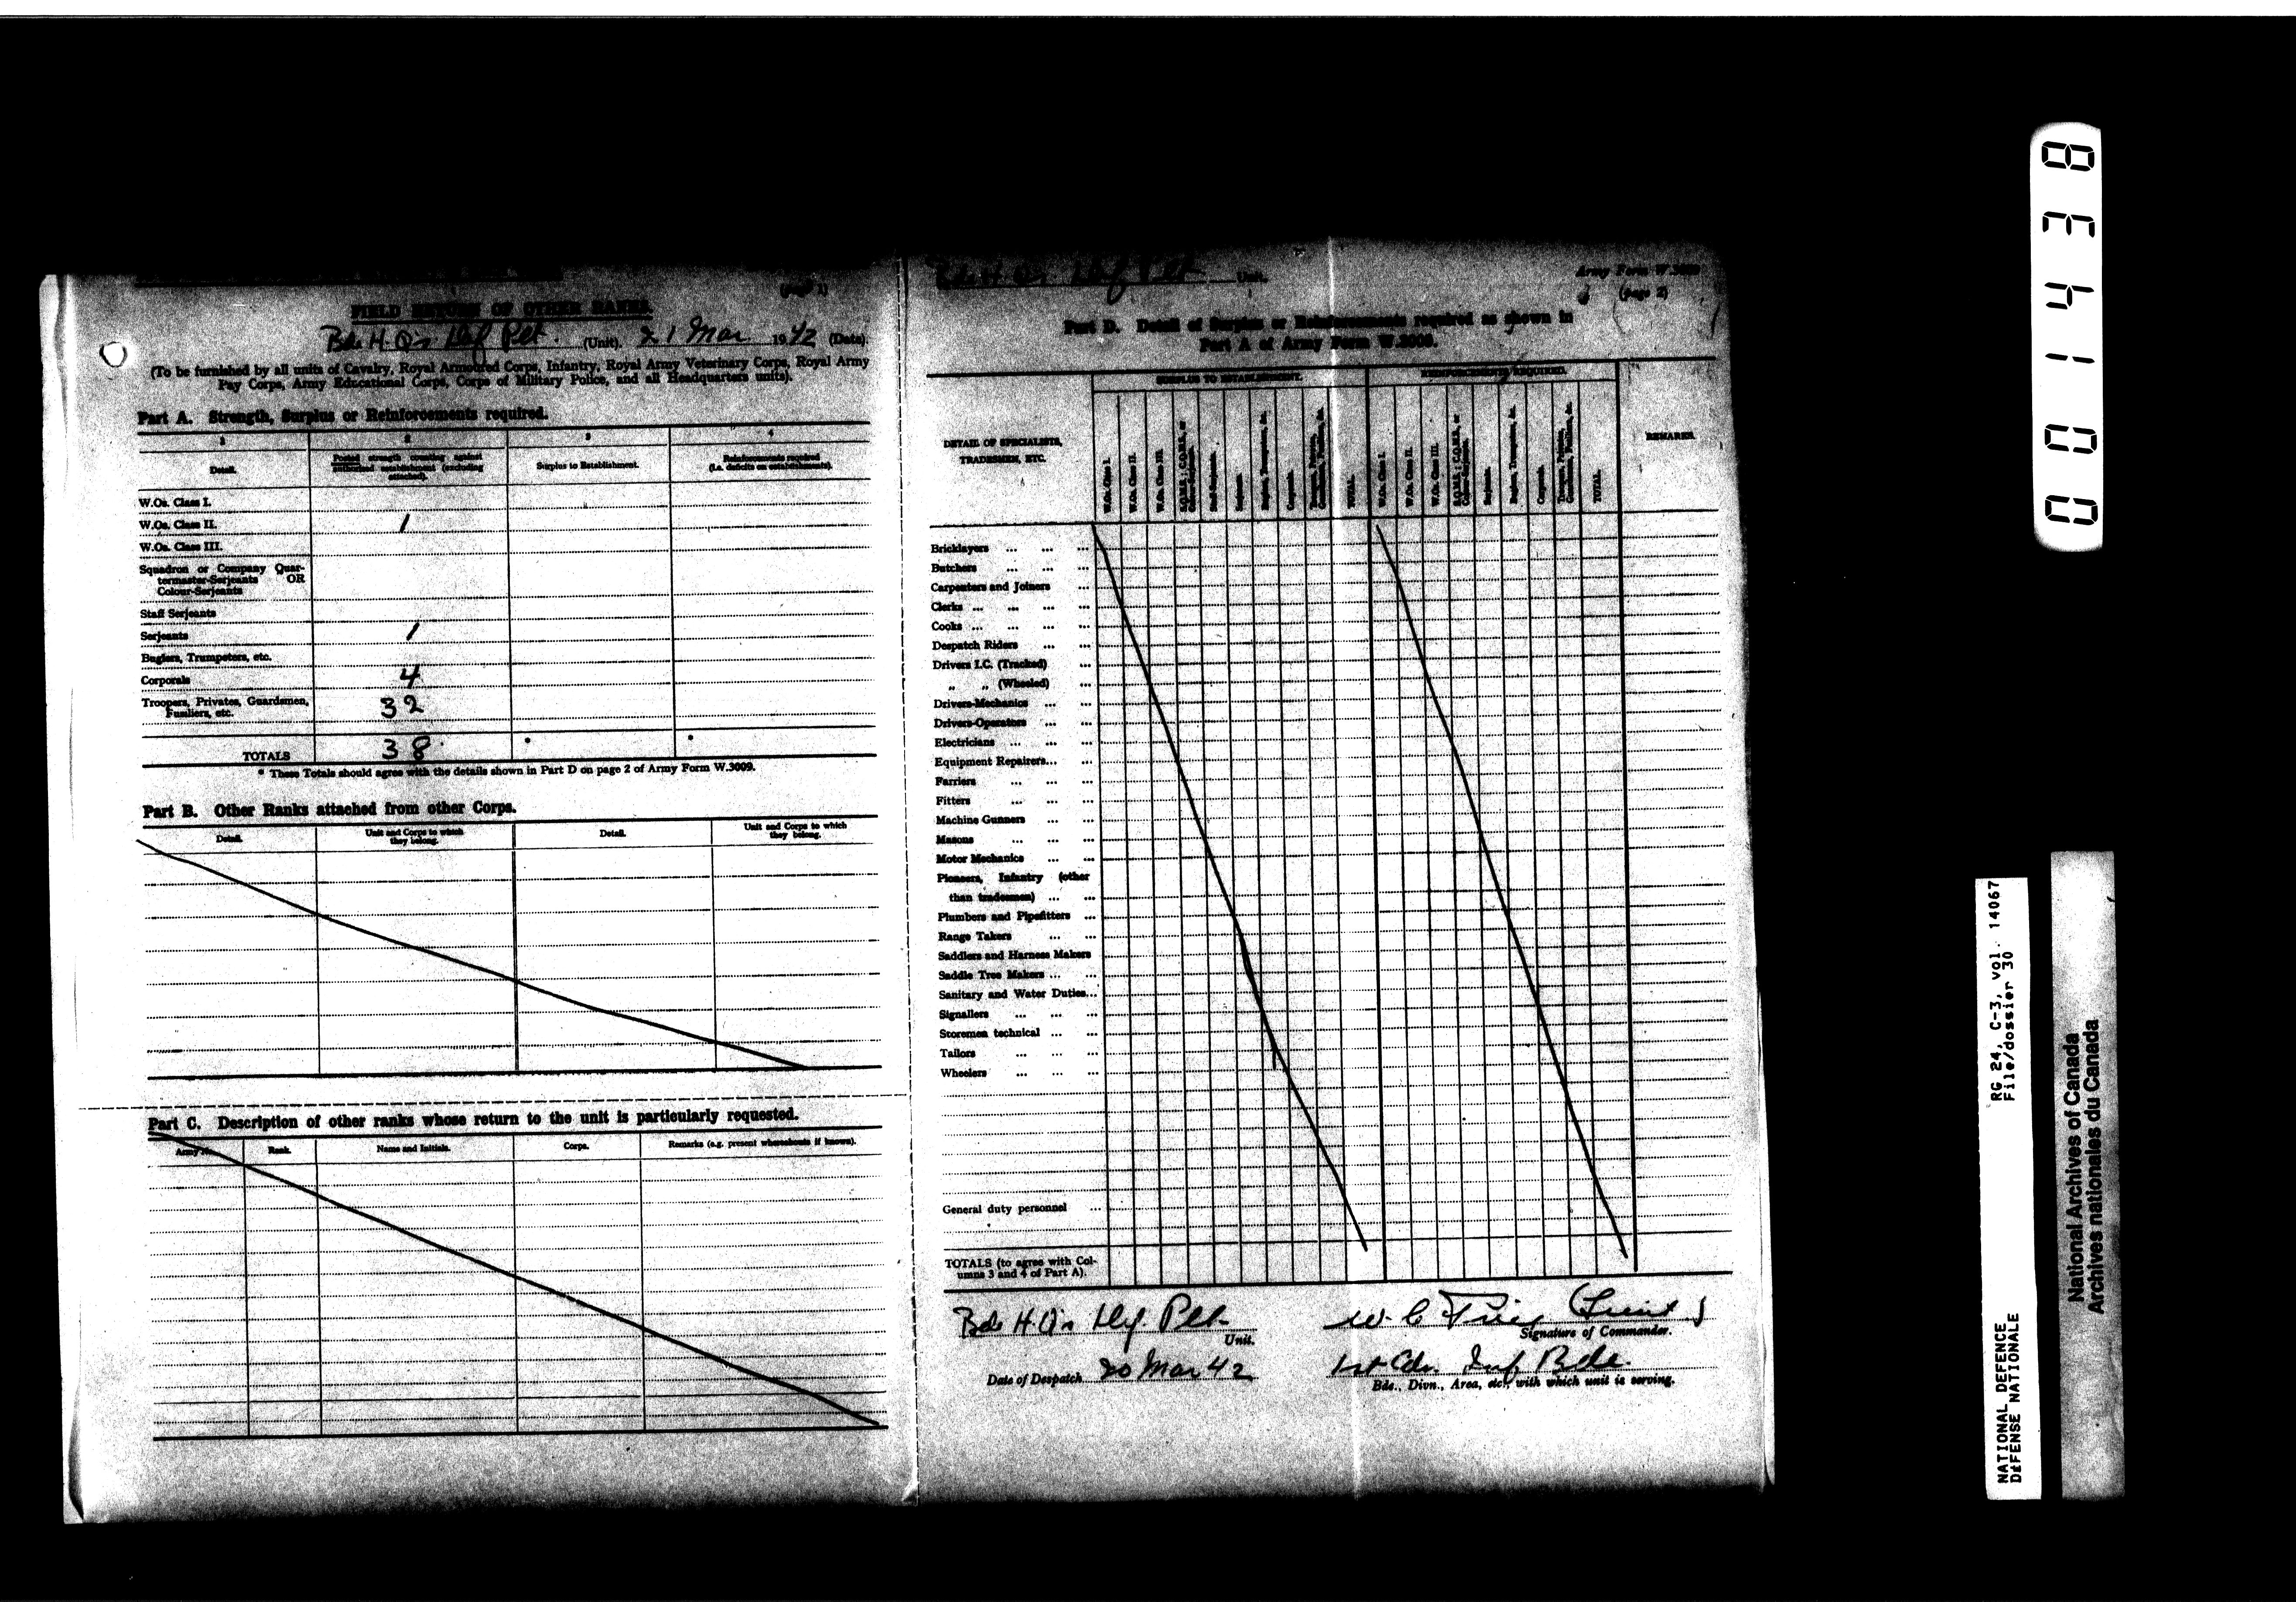 (page 1)
FIELD RETURN OF OTHER RANKS.
Bde H.Q's Def Plt. (Unit). 21 Mar 1942 (Date).
(To be furnished by all units of Cavalry, Royal Armoured Corps, Infantry, Royal Army Veterinary Corps, Royal Army
Pay Corps, Army Educational Corps, Corps of Military Police, and all Headquarters units).
Part A. Strength, Surplus or Reinforcements required.
1 2 3 4
Detail. Posted strength counting against authorized establishment (excluding attached). Surplus to Establishment. Reinforcements required (i.e. deficits on establishments).
W.Os. Class I.
W.Os. Class II. 1
W.Os. Class III.
Squadron or Company Quar-
termaster-Serjeants OR
Colour-Serjeants
Staff Serjeants
Serjeants 1
Buglers, Trumpeters, etc.
Corporals 4
Troopers, Privates, Guardsmen,
Fusiliers, etc. 32
TOTALS 38 * *
* These Totals should agree with the details shown in Part D on page 2 of Army Form W.3009.
Part B. Other Ranks attached from other Corps.
Detail. Unit and Corps to which they belong. Detail. Unit and Corps to which they belong.
Part C. Description of other ranks whose return to the unit is particularly requested.
Army Rank. Name and Initials. Corps. Remarks (e.g. present whereabouts if known).
Bde H.Q's Def Plt Unit.
Army Form W.3009
(page 2)
Part D. Detail of Surplus or Reinforcements required as shown in
Part A of Army Form W.3009.
SURPLUS TO ESTABLISHMENT. REINFORCEMENTS REQUIRED.
DETAIL OF SPECIALISTS,
TRADESMEN, ETC.
W.Os. Class I. W.Os. Class II. W.Os. Class III. S.Q.M.S.; C.Q.M.S., or Colour-Serjeants. Staff-Serjeants. Serjeants. Buglers, Trumpeters, &c. Corporals. Troopers, Privates, Guardsmen, Fusiliers, &c. TOTAL.
W.Os. Class I. W.Os. Class II. W.Os. Class III. S.Q.M.S.; C.Q.M.S., or Colour-Serjeants. Serjeants. Buglers, Trumpeters, &c. Corporals. Troopers, Privates, Guardsmen, Fusiliers, &c. TOTAL.
REMARKS.
Bricklayers ... ... ...
Butchers ... ... ...
Carpenters and Joiners ...
Clerks ... ... ... ...
Cooks ... ... ... ...
Despatch Riders ... ...
Drivers I.C. (Tracked) ...
„ „ (Wheeled) ...
Drivers-Mechanics ... ...
Drivers-Operators ... ...
Electricians ... ... ...
Equipment Repairers... ...
Farriers ... ... ...
Fitters ... ... ...
Machine Gunners ... ...
Masons ... ... ...
Motor Mechanics ... ...
Pioneers, Infantry (other
than tradesmen) ... ...
Plumbers and Pipefitters ...
Range Takers ... ...
Saddlers and Harness Makers
Saddle Tree Makers ... ...
Sanitary and Water Duties...
Signallers ... ... ...
Storemen technical ... ...
Tailors ... ... ...
Wheelers ... ... ...
General duty personnel ...
TOTALS (to agree with Col-
umns 3 and 4 of Part A).
Bde H.Q's Def. Plt. Unit.
W. C. Lieut
Signature of Commander.
Date of Despatch 20 Mar 42
1st Cdn. Inf Bde.
Bde., Divn., Area, etc., with which unit is serving.
001438
RG 24, C-3, vol. 14067
File/dossier 30
NATIONAL DEFENCE
DéFENSE NATIONALE
National Archives of Canada
Archives nationales du Canada